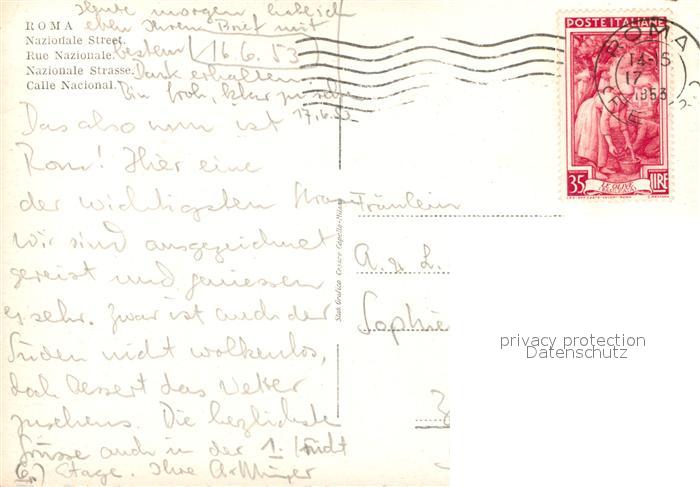 Heute morgen
eben Ihren Brief mit
bestem (16.6.53)
Dank erhalten.
Bin froh, klar zu sehen
17.6.53
ROMA
Nazionale Street.
Rue Nazionale.
Nazionale Strasse.
Calle Nacional.
Das also nun ist
Rom! Hier eine
der wichtigsten
Wir sind ausgezeichnet
gereist und geniessen
es sehr. Zwar ist auch der
Süden nicht wolkenlos,
doch bessert das Wetter
zusehens. Die herzlichste
Grüsse auch in der 1. (nicht
6.) Etage. Ihre
Stab. Grafico Cesare Capello - Milano
Fräulein
A. u. L.
Sophie
POSTE ITALIANE
35 LIRE
ROMA
17
1953
privacy protection
Datenschutz